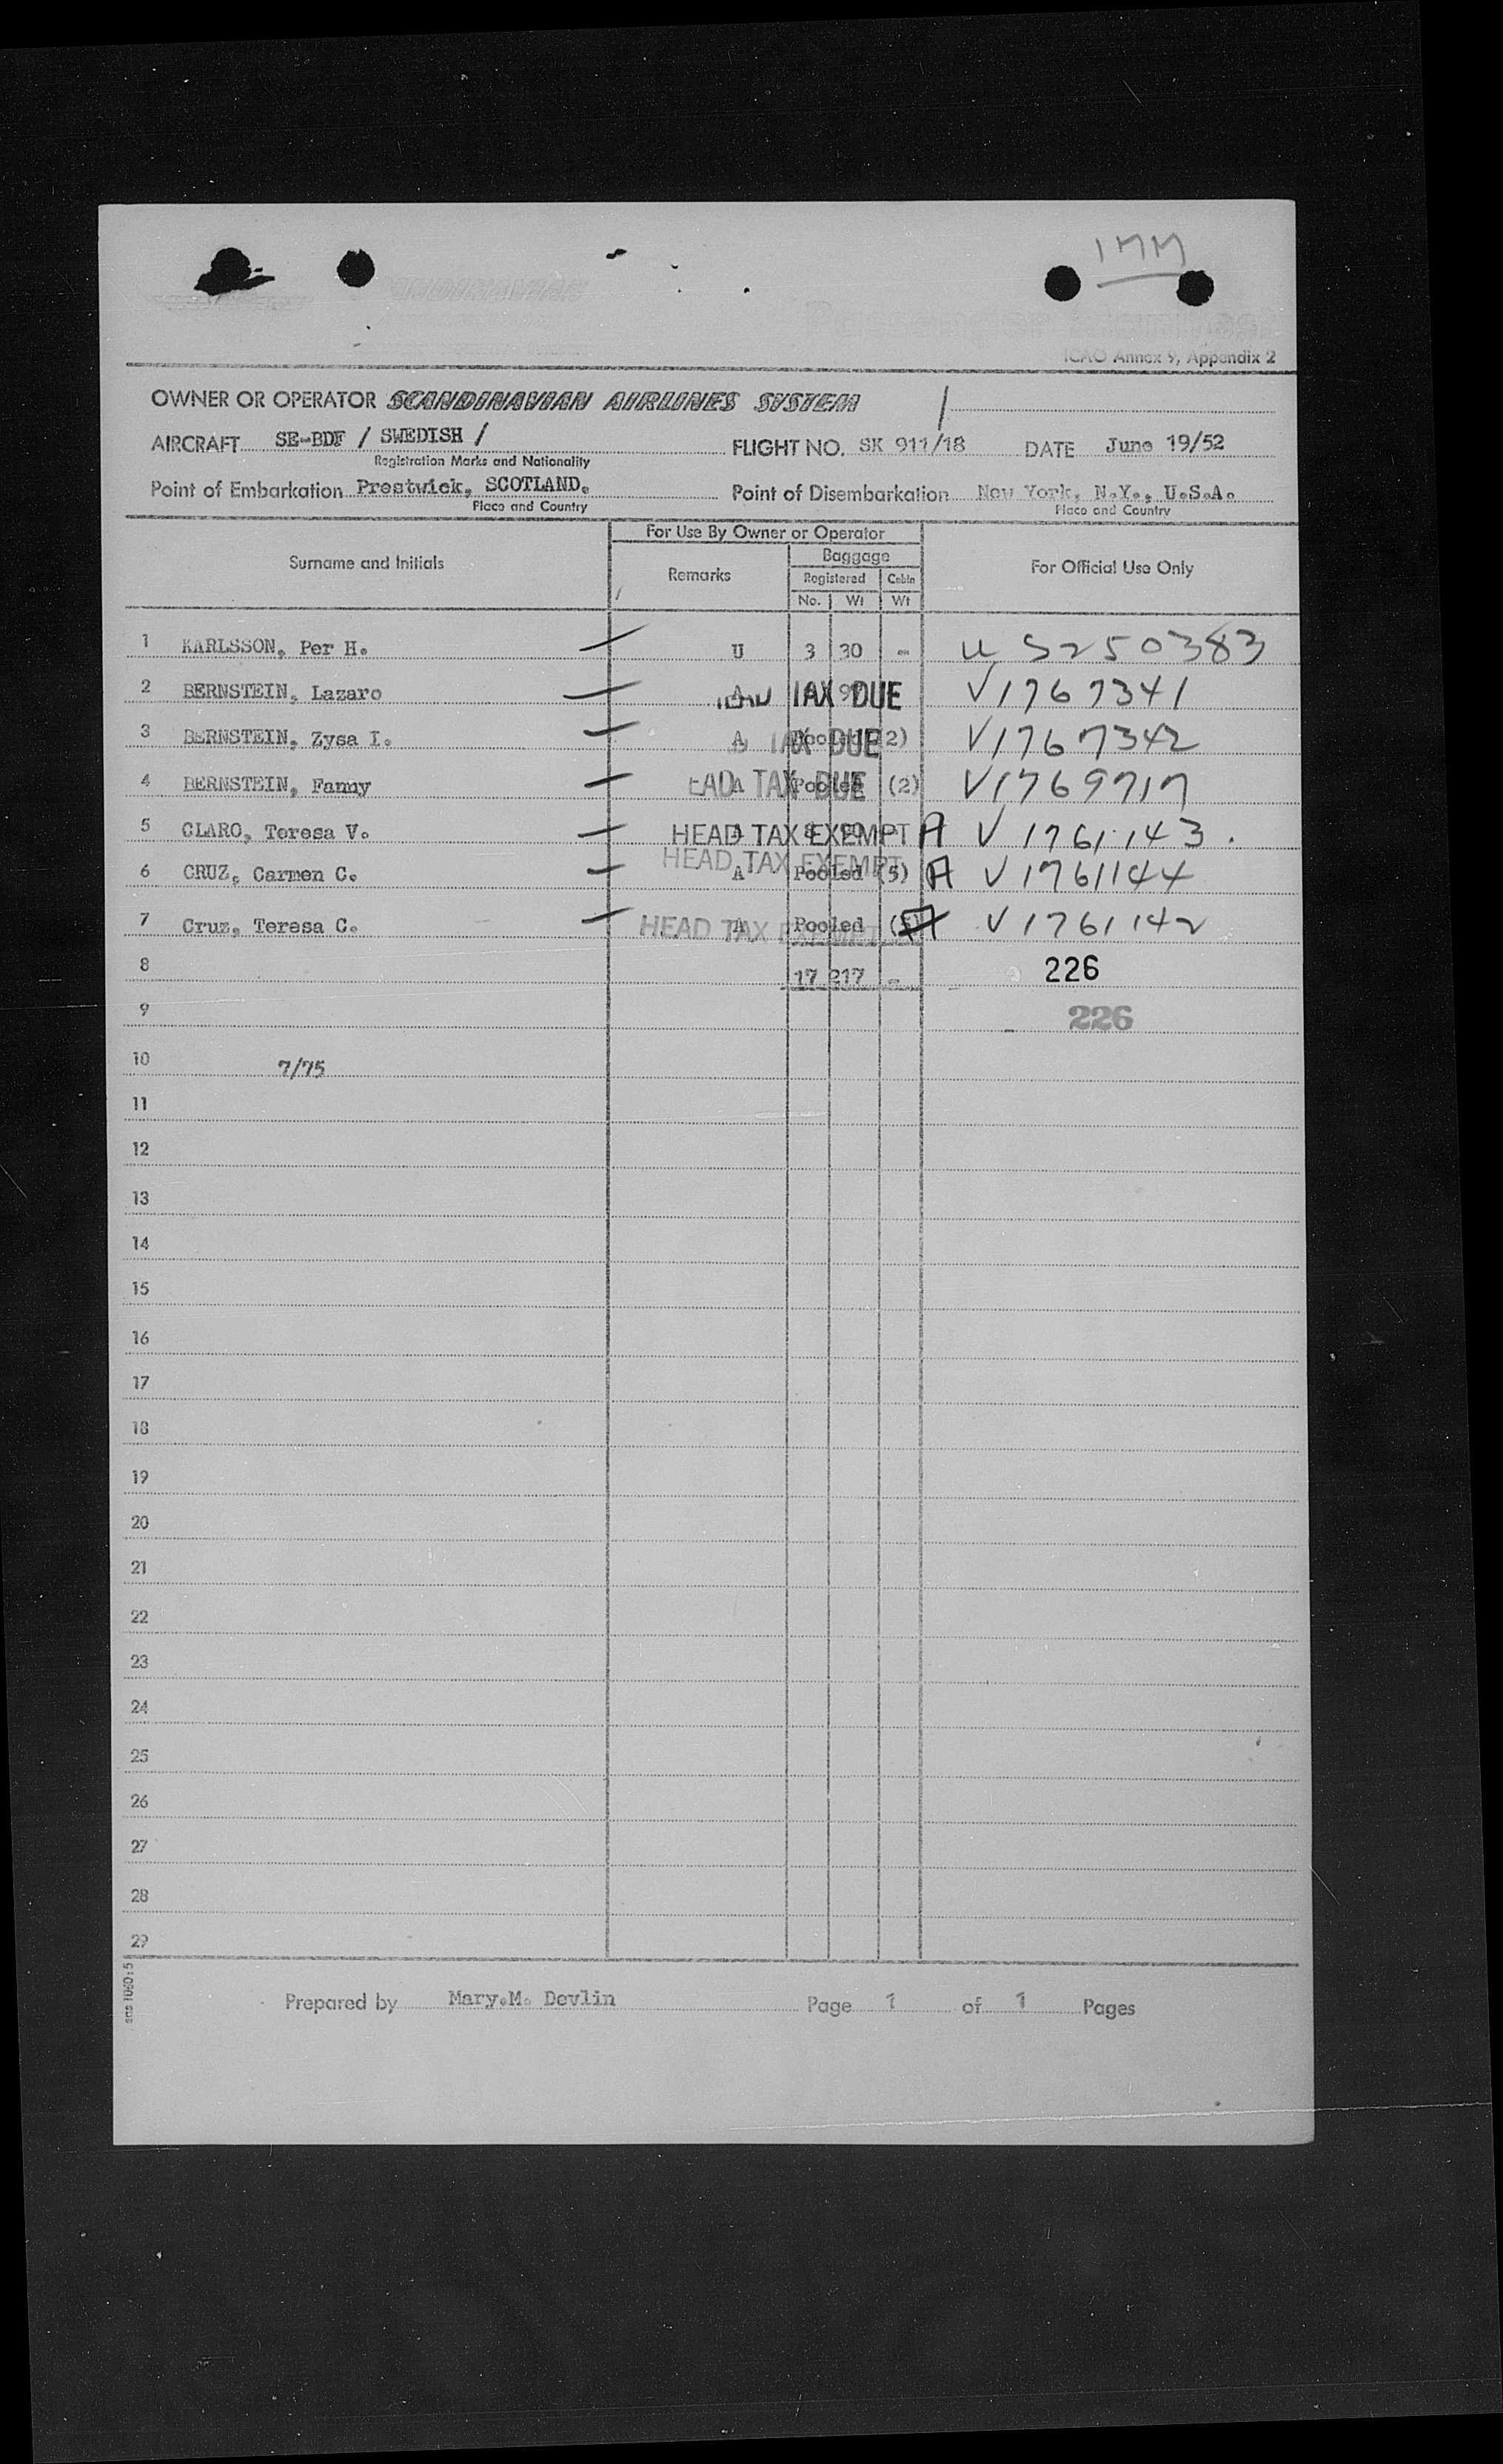 IMM
ICAO Annex 9, Appendix 2
OWNER OR OPERATOR SCANDINAVIAN AIRLINES SYSTEM
AIRCRAFT SE-BDF / SWEDISH / FLIGHT NO. SK 911/18 DATE June 19/52
Registration Marks and Nationality
Point of Embarkation Prestwick, SCOTLAND. Point of Disembarkation New York, N.Y., U.S.A.
Place and Country Place and Country
For Use By Owner or Operator
Surname and Initials Remarks Baggage For Official Use Only
Registered Cabin
No. Wt Wt
1 KARLSSON, Per H. U 3 30 - U S250383
2 BERNSTEIN, Lazaro TAX DUE V1767341
3 BERNSTEIN, Zysa I. A Pooled (2) TAX DUE V1767342
4 BERNSTEIN, Fanny A Pooled (2) EAD TAX DUE V1769717
5 CLARO, Teresa V. HEAD TAX EXEMPT A V 1761143.
6 CRUZ, Carmen C. A Pooled (5) HEAD TAX EXEMPT A V 1761144
7 Cruz, Teresa C. A Pooled HEAD TAX EXEMPT V 1761142
8 17 217 - 226
9 226
10 7/75
11
12
13
14
15
16
17
18
19
20
21
22
23
24
25
26
27
28
29
sas 1060:5
Prepared by Mary.M. Devlin Page 1 of 1 Pages